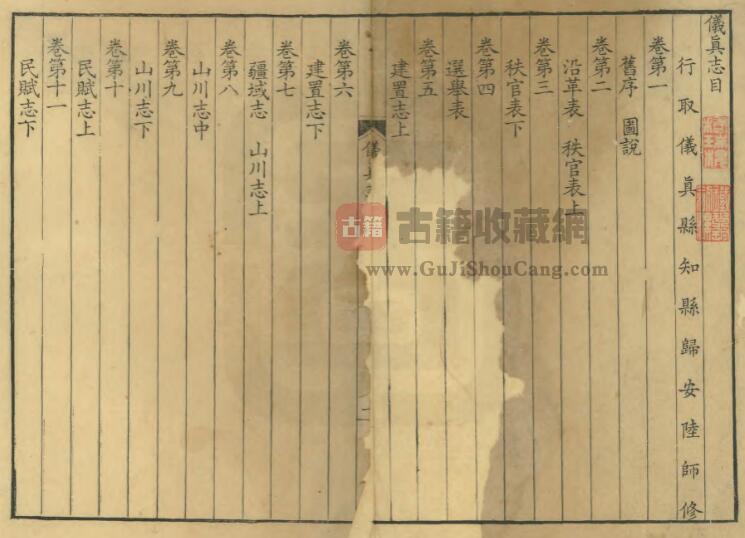 儀眞志目
行取儀眞縣知縣歸安陸師修
卷第一
舊序 圖說
卷第二
沿革表 秩官表上
卷第三
秩官表下
卷第四
選舉表
卷第五
建置志上
儀眞志
卷第六
建置志下
卷第七
疆域志 山川志上
卷第八
山川志中
卷第九
山川志下
卷第十
民賦志上
卷第十一
民賦志下
古籍
古籍收藏網
www.GuJiShouCang.com